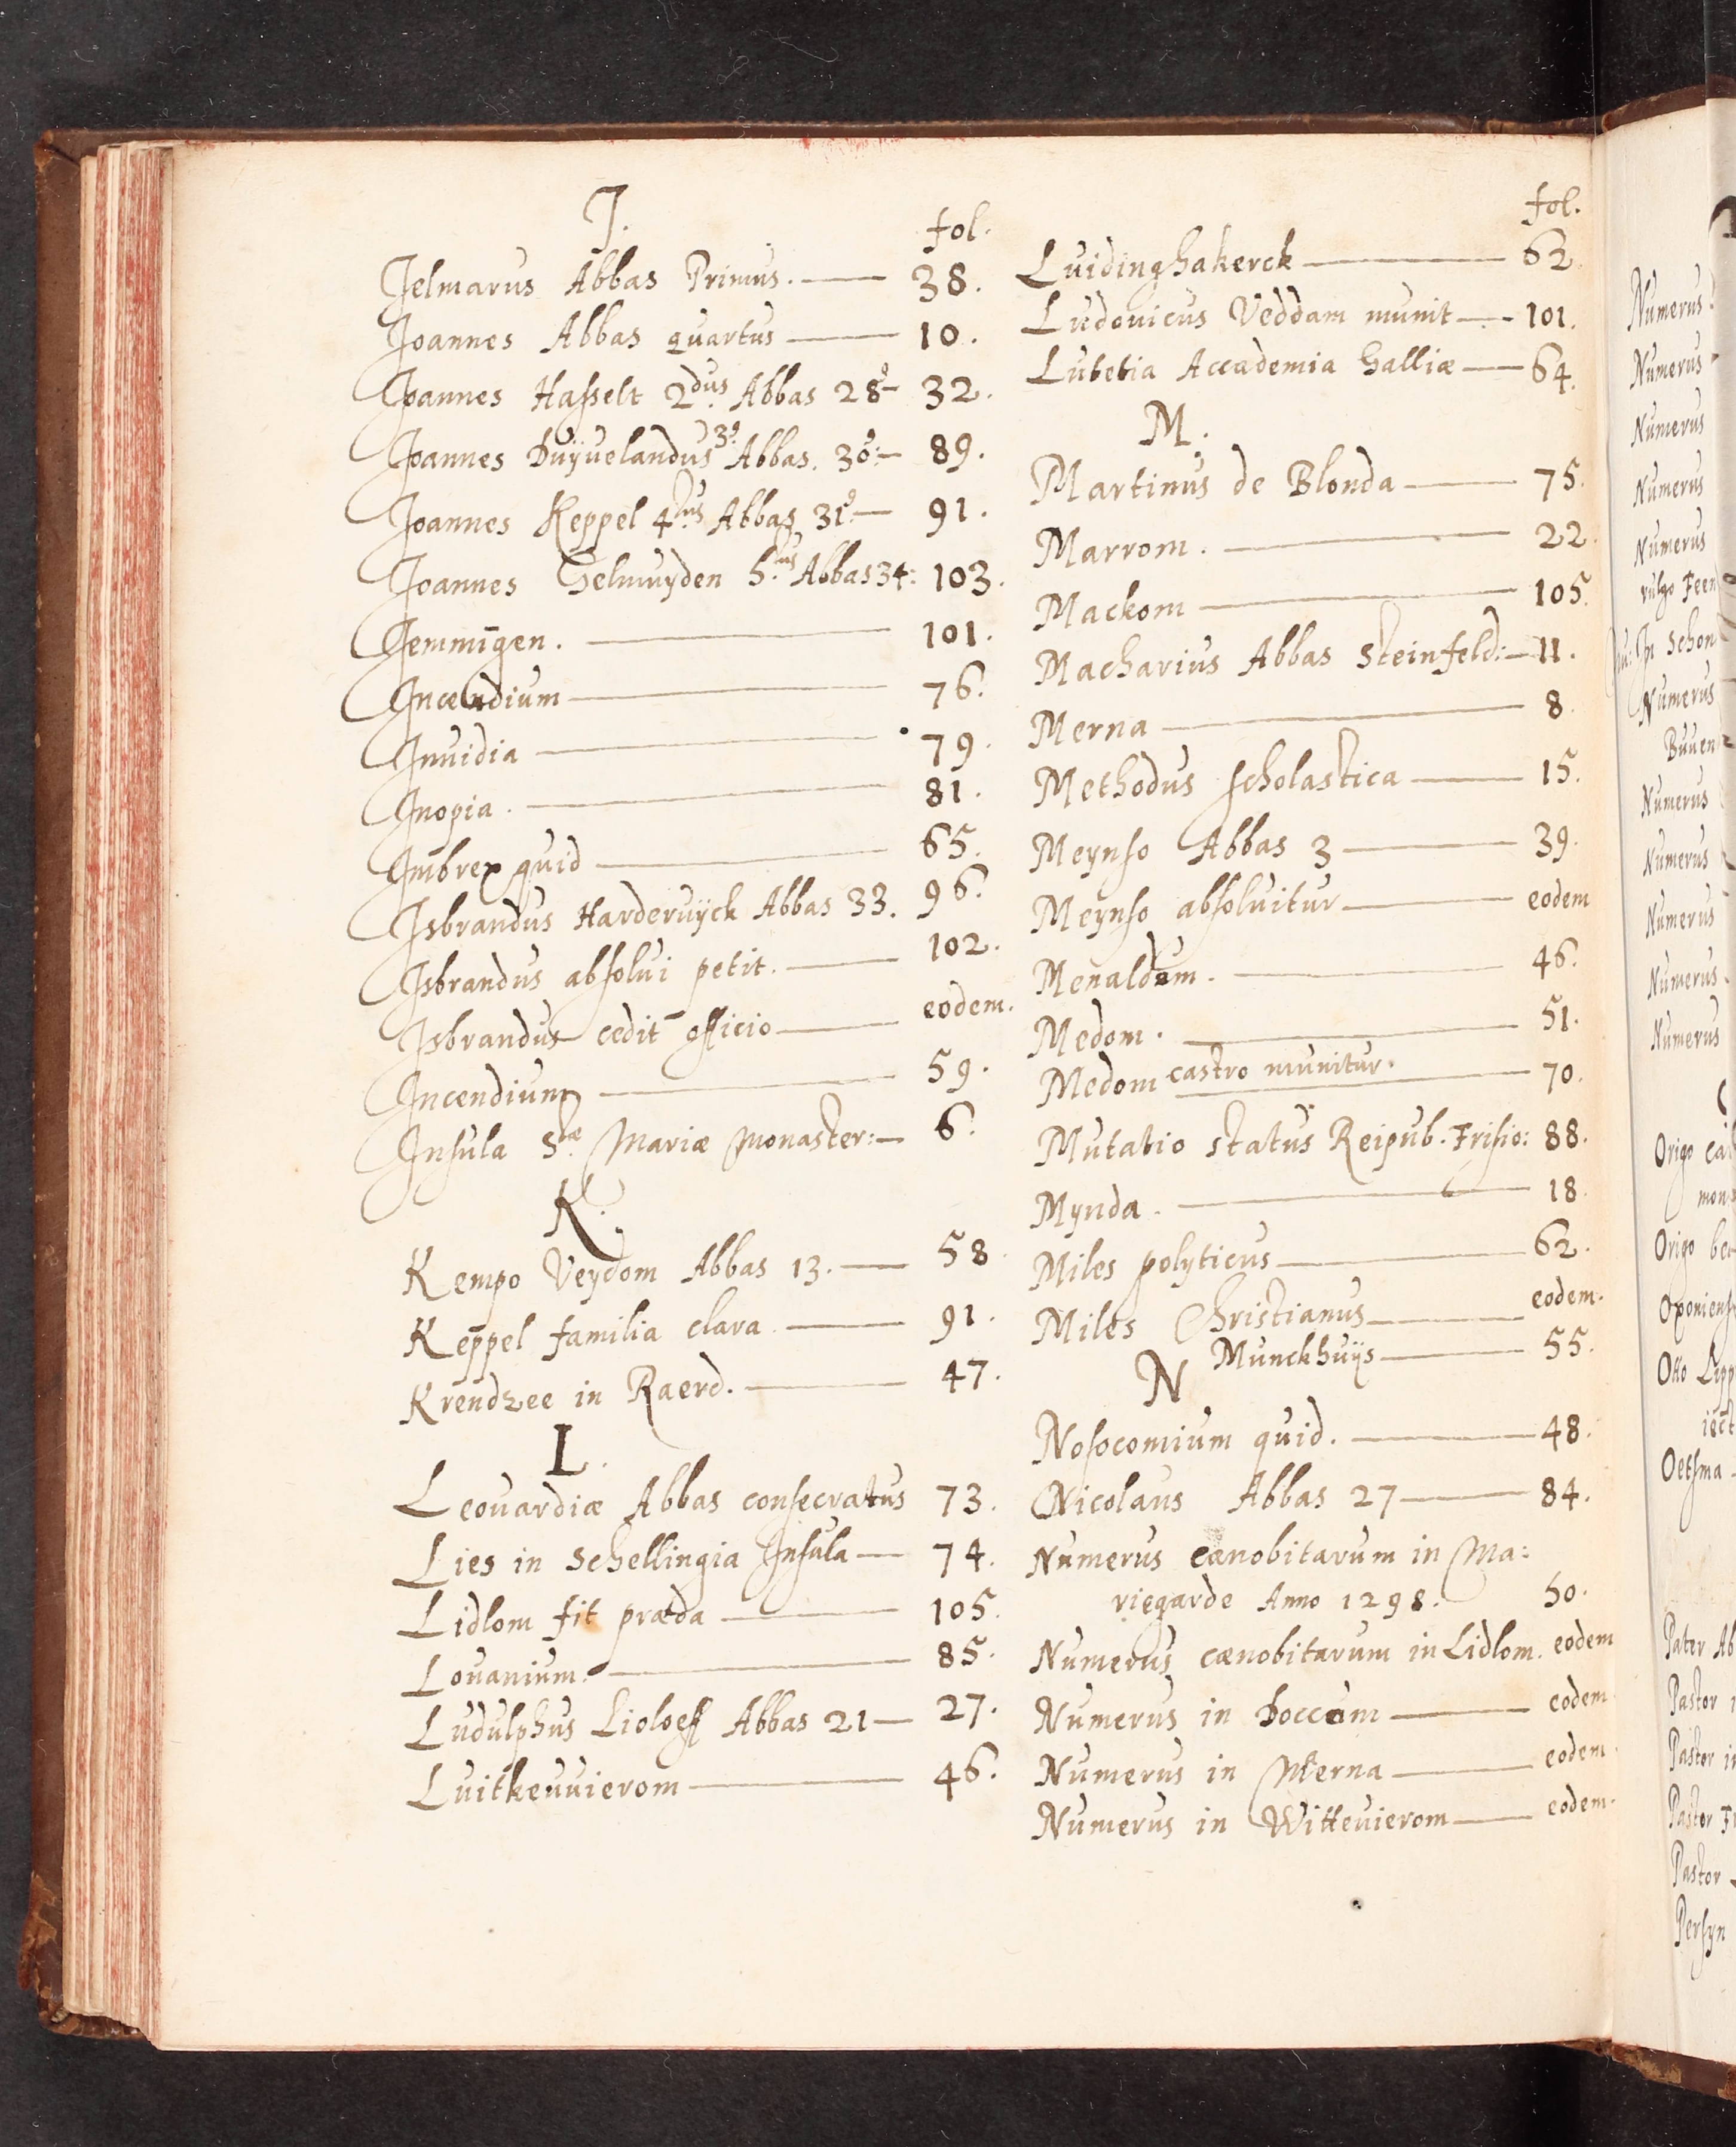 J.
fol.
Jelmarus Abbas Primus. — 38.
Joannes Abbas quartus — 10.
Joannes Hasselt 2.dus Abbas 28.9 — 32.
Joannes Duyvelandus 3.9 Abbas. 30.9: — 89.
Joannes Keppel 4.tus Abbas 31.9 — 91.
Joannes Gelmuyden 5.tus Abbas 34: 103.
Jemmigen. — 101.
Incendium — 76.
Invidia — 79.
Inopia. — 81.
Imbrex quid — 65.
Isbrandus Harderwijck Abbas 33. 96.
Isbrandus absolui petit. — 102.
Isbrandus cedit officio — eodem.
Incendium — 59.
Insula S.æ Mariæ Monaster: — 6.
K.
Kempo Veydom Abbas 13. — 58
Keppel familia clara — 91.
Krendzee in Raerd. — 47.
L.
Leovardiæ Abbas consecratus 73.
Lies in Schellingia Insula — 74.
Lidlom fit præda — 105.
Lovanium. — 85.
Ludulphus Lioloeff Abbas 21 — 27.
Luitkeuuierom — 46.
fol.
Luidinghakerck — 62
Ludovicus Veddam munit — 101.
Lutetia Accademia Galliæ — 64.
M.
Martinus de Blonda — 75.
Marrom. — 22.
Mackom — 105.
Macharius Abbas Steinfeld: — 11.
Merna — 8
Methodus scholastica — 15.
Meynso Abbas 3 — 39.
Meynso absoluitur — eodem
Menaldum. — 46.
Medom. — 51.
Medom castro munitur. — 70.
Mutatio status Reipub. Frisio: 88.
Mynda. — 18.
Miles polyticus — 62.
Miles Christianus — eodem.
Munckhuijs — 55.
N
Nosocomium quid. — 48.
Nicolaus Abbas 27 — 84.
Numerus cænobitarum in Ma:
riegarde Anno 1298. 50.
Numerus cænobitarum in Lidlom. eodem
Numerus in Doccum — eodem
Numerus in Merna — eodem.
Numerus in Wittevierom — eodem.
Numerus
Numerus
Numerus
Numerus
Numerus
vulgo Feen
In Schon
Numerus
Buuen
Numerus
Numerus
Numerus
Numerus
Numerus
Origo
Origo
Otto Lipp
Oetsma
Pater Ab
Pastor
Pastor
Pastor
Pastor
Persyn